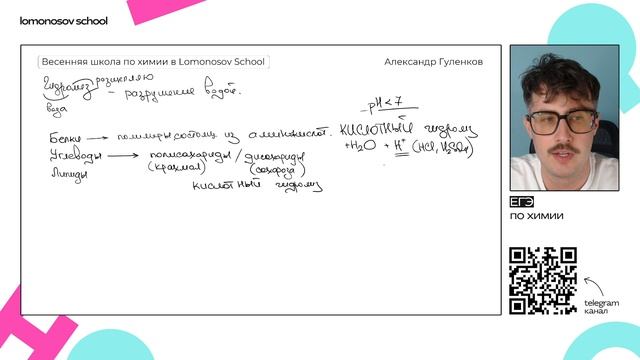 lomonosov school
Весенняя школа по химии в Lomonosov School
Александр Гуленков
Гидролиз расщепляю
вода
– разрушение водой.
pH < 7
Белки → полимеры состоящ из аминокислот. кислотный гидролиз
+H2O + H+ (HCl, H2SO4)
Углеводы → полисахариды / дисахариды
(крахмал) (сахароза)
Липиды
кислотный гидролиз
ЕГЭ
по химии
telegram
канал